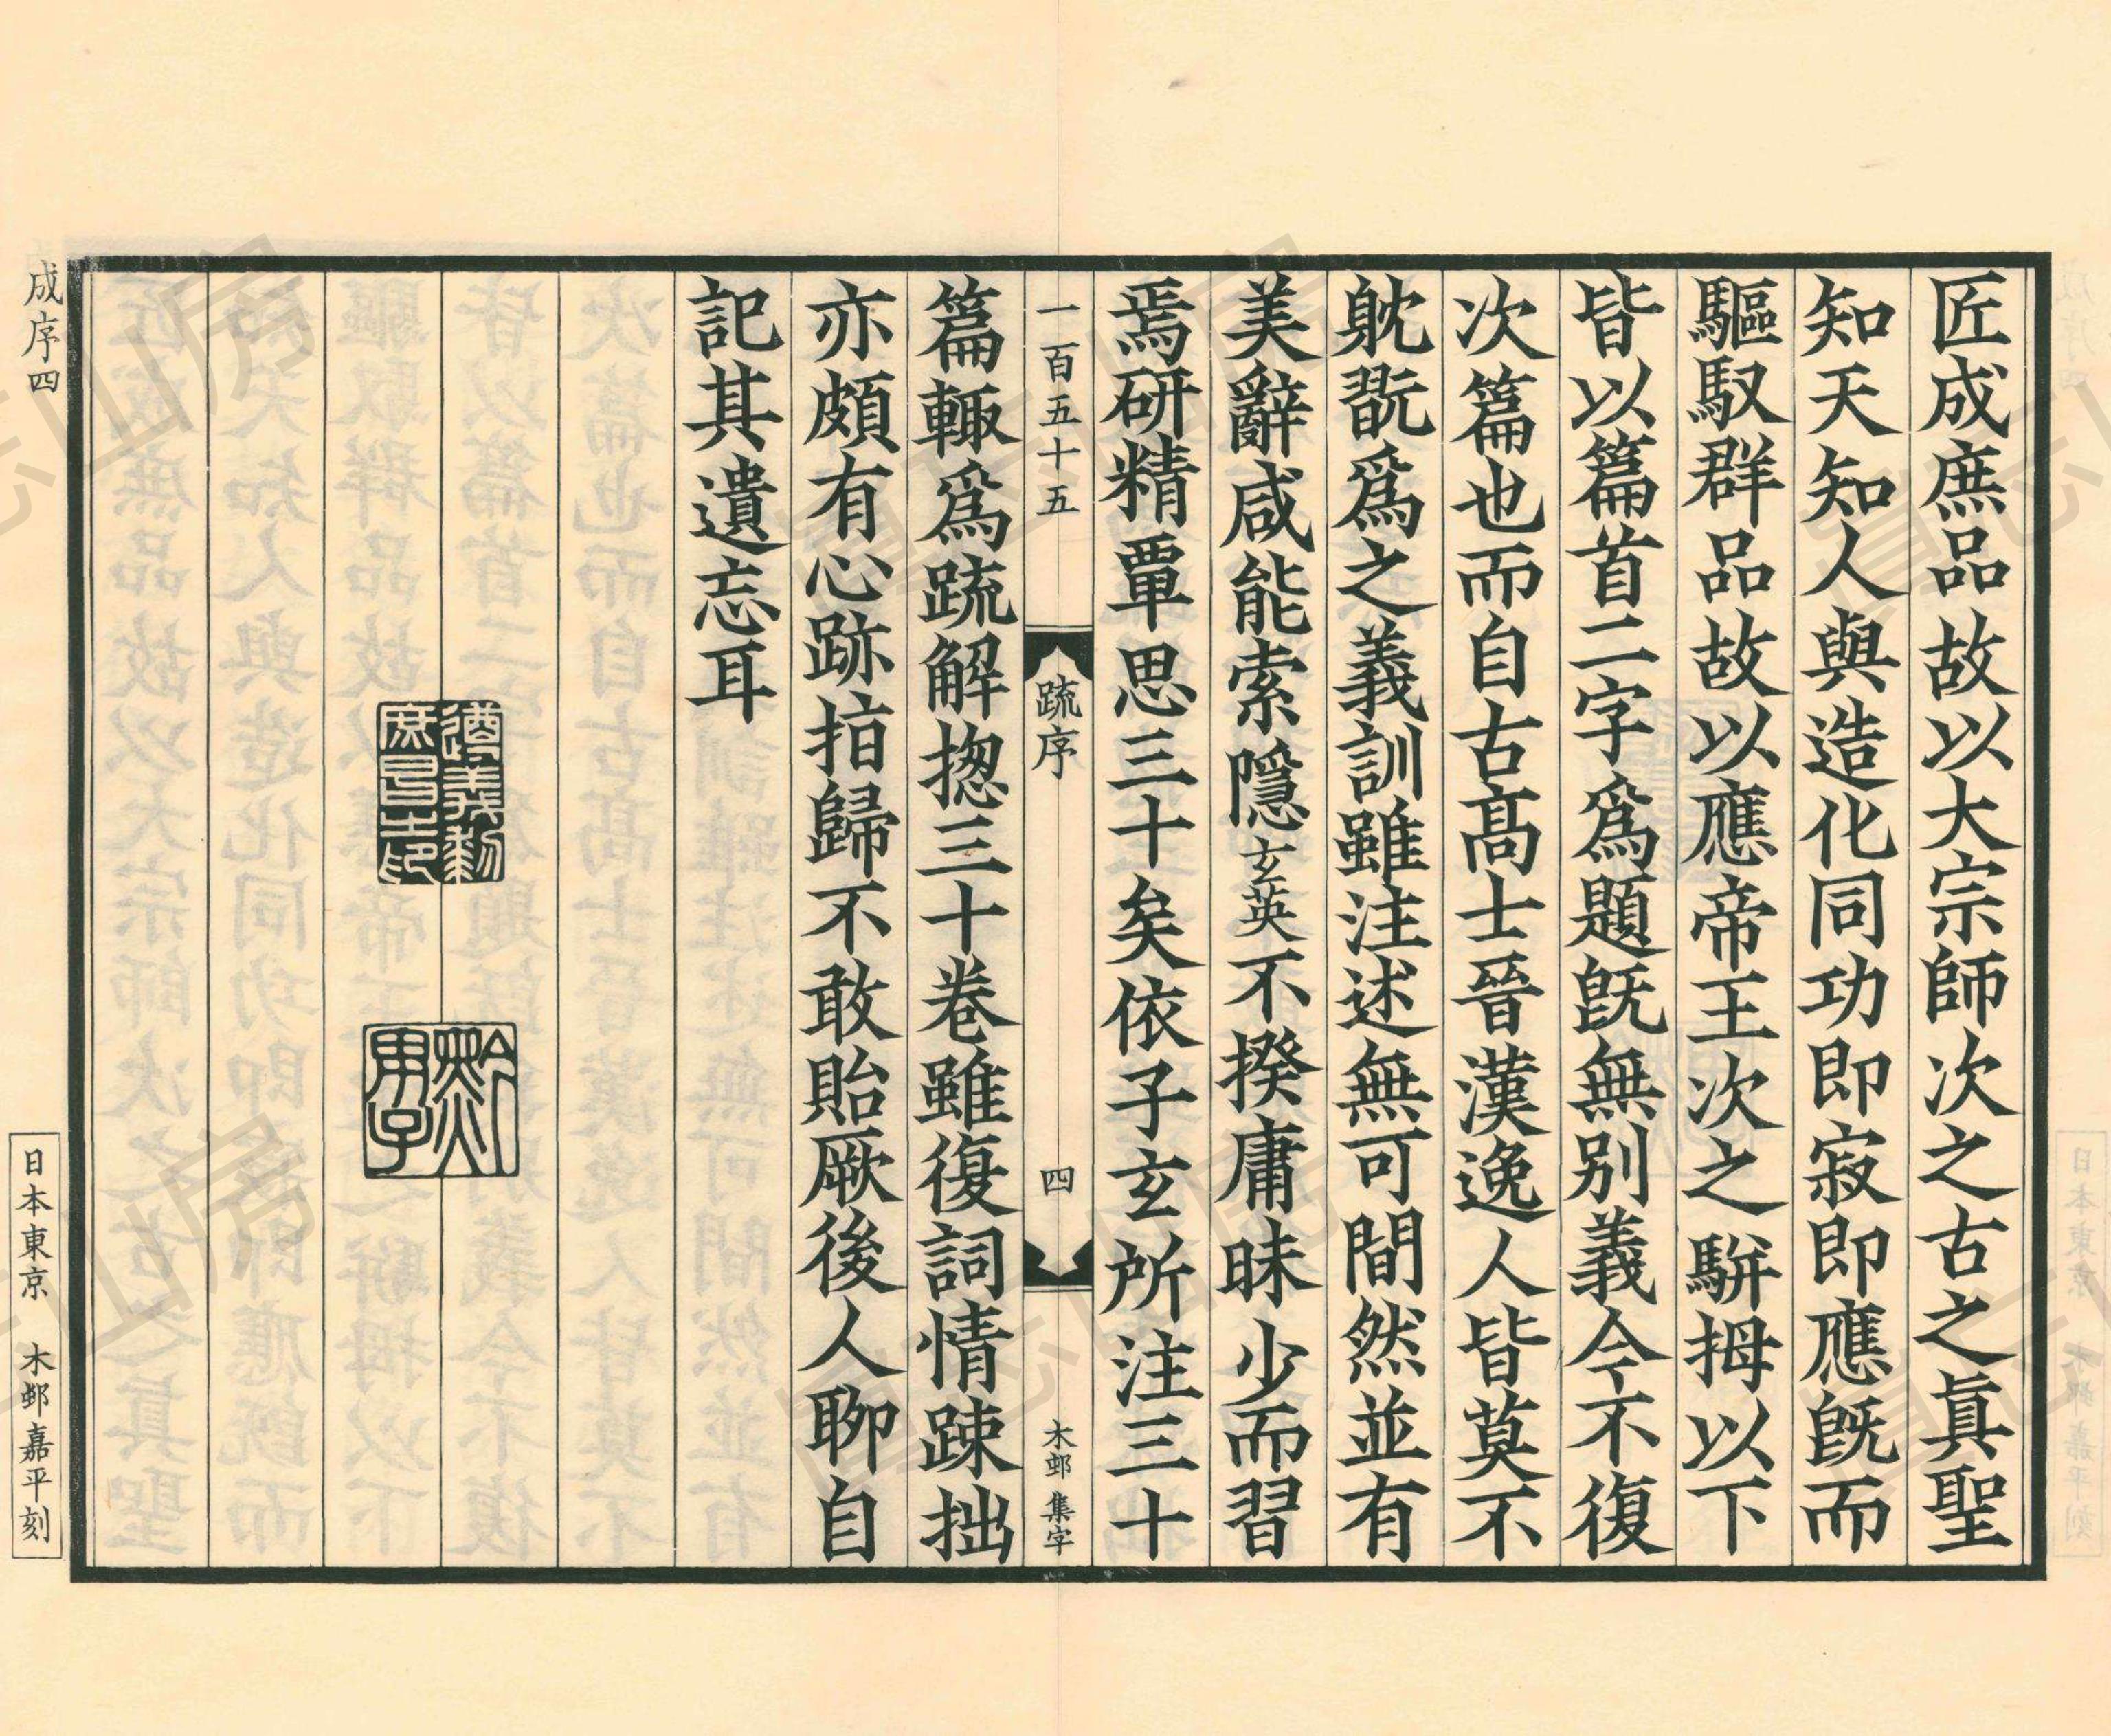 匠成庶品故以大宗師次之古之真聖
知天知人與造化同功即寂即應既而
驅馭群品故以應帝王次之駢拇以下
皆以篇首二字為題既無別義今不復
次篇也而自古高士晉漢逸人皆莫不
躭翫爲之義訓雖注述無可間然並有
美辭咸能索隱玄英不揆庸昧少而習
焉研精覃思三十矣依子玄所注三十
一百五十五
䟽序
四
木邨集字
篇輙爲䟽解揔三十卷雖復詞情踈拙
亦頗有心跡指歸不敢貽厥後人聊自
記其遺忘耳
遵義黎庶昌之印
黔男子
成序四
日本東京 木邨嘉平刻